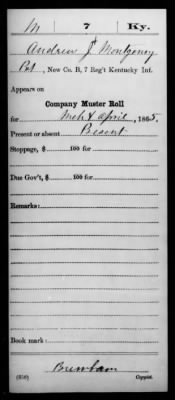 M 7 Ky.
Andrew J Montgomery
Pvt, New Co. B, 7 Reg't Kentucky Inf.
Appears on
Company Muster Roll
for Mch & April, 1865.
Present or absent Present
Stoppage, $ 100 for
Due Gov't, $ 100 for
Remarks:
Book mark:
(358) Copyist.